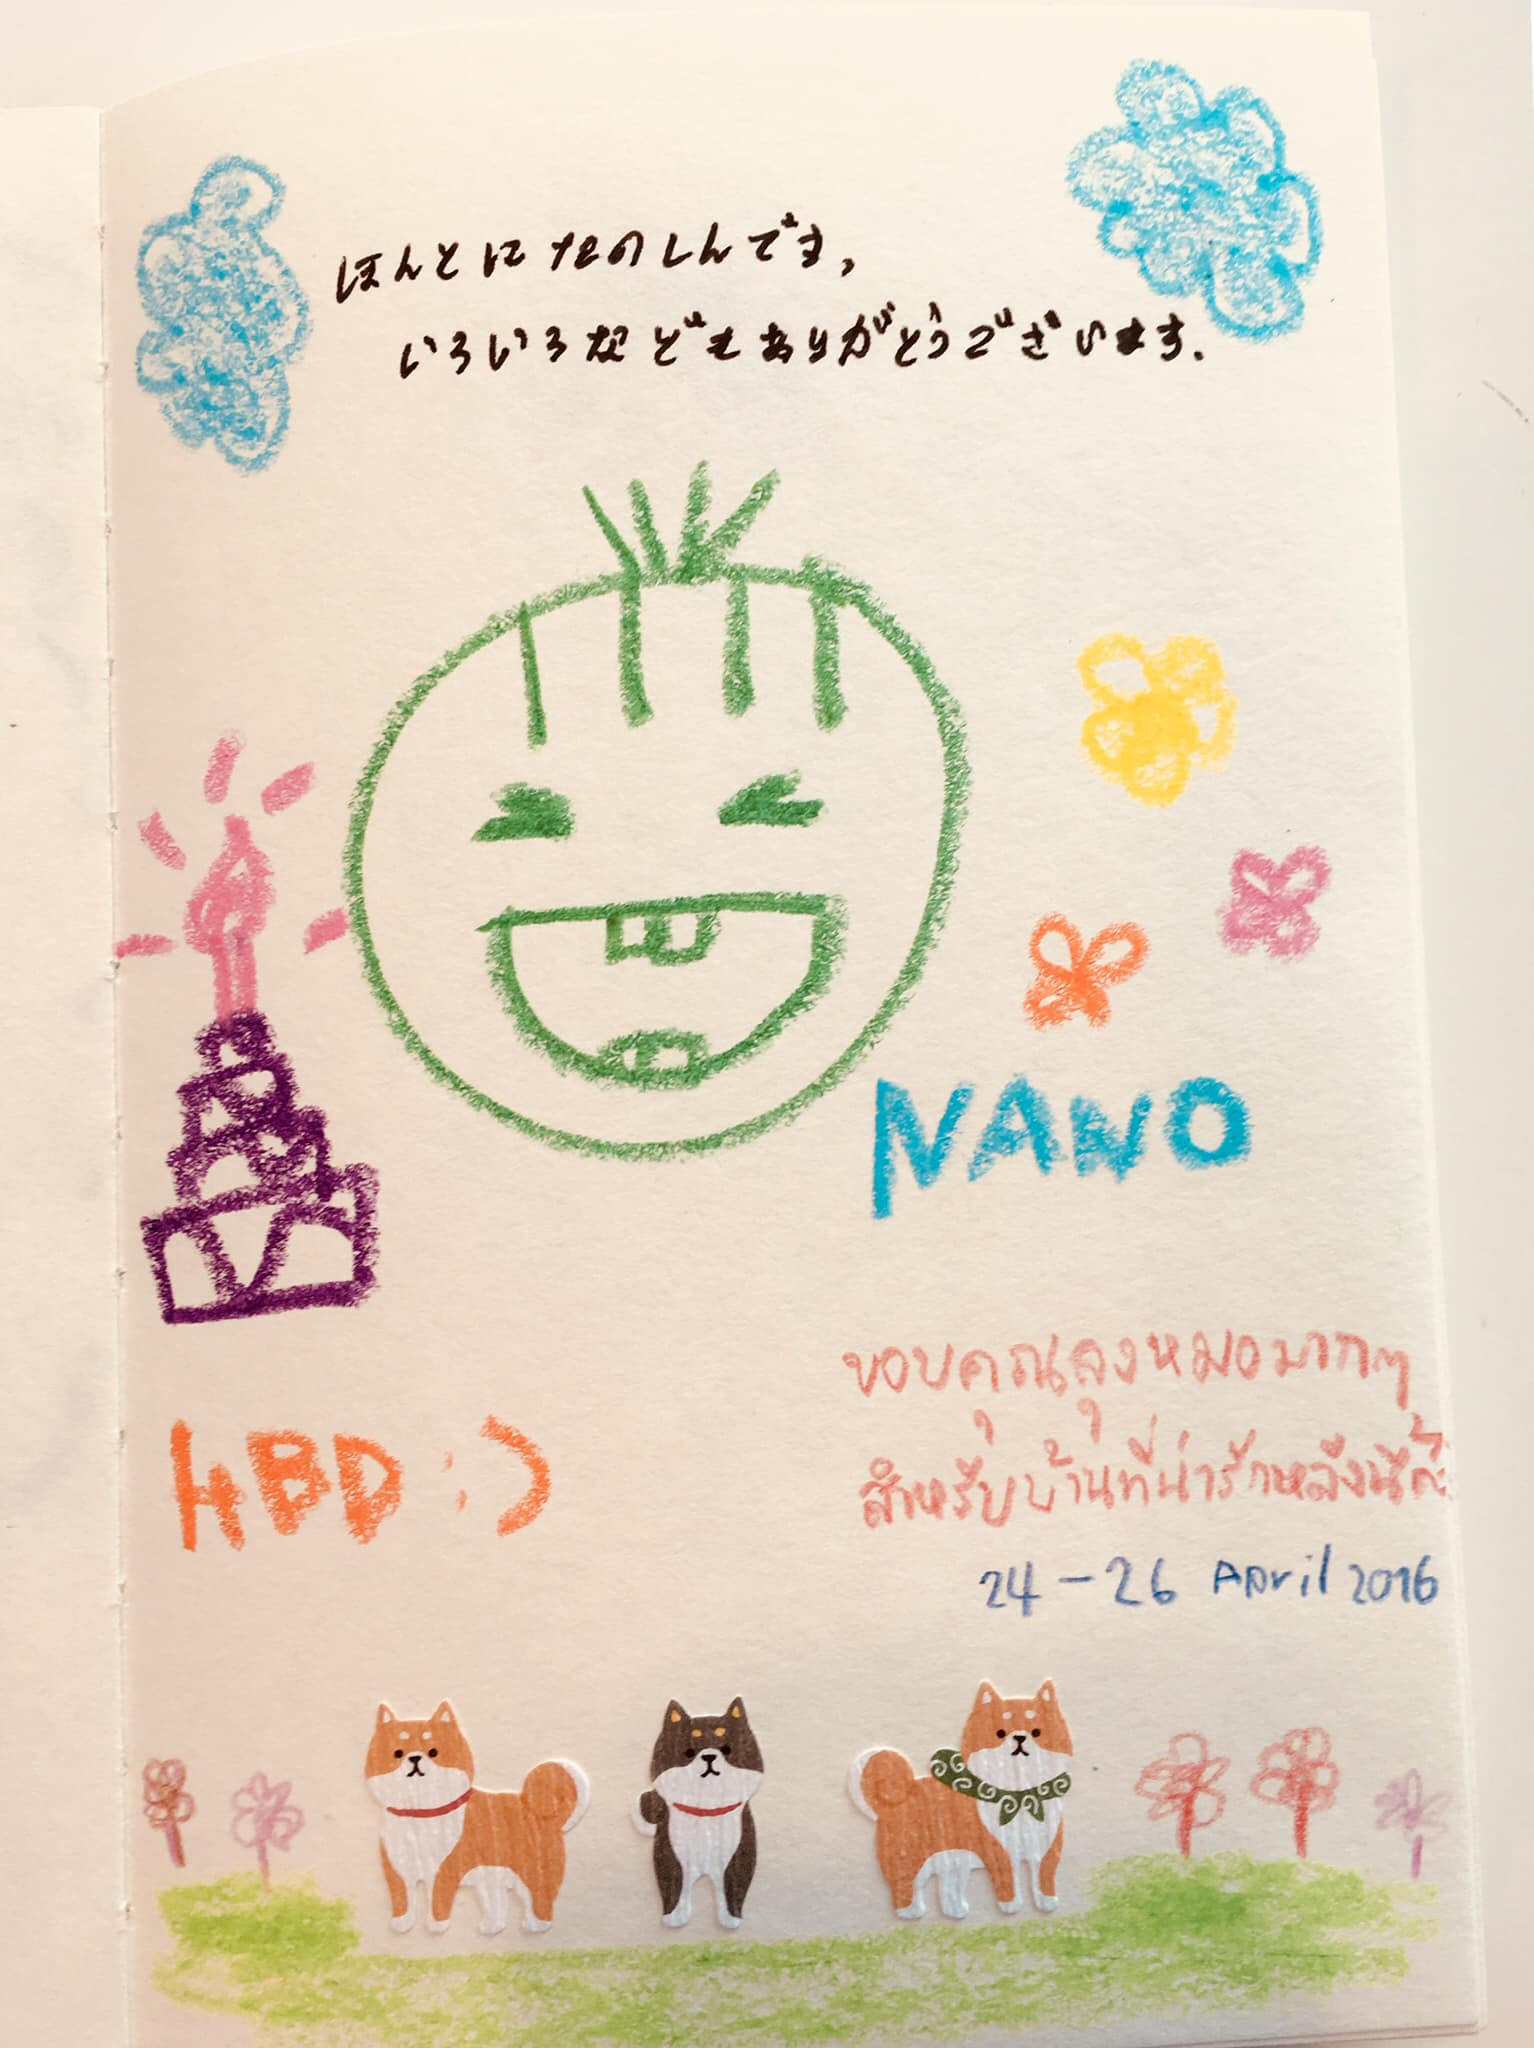 ほんとにたのしんです,
いろいろなどもありがとうございます.
NANO
ขอบคุณลุงหมอมากๆ
สำหรับบ้านที่น่ารักหลังนี้ค่ะ
HBD :)
24-26 April 2016